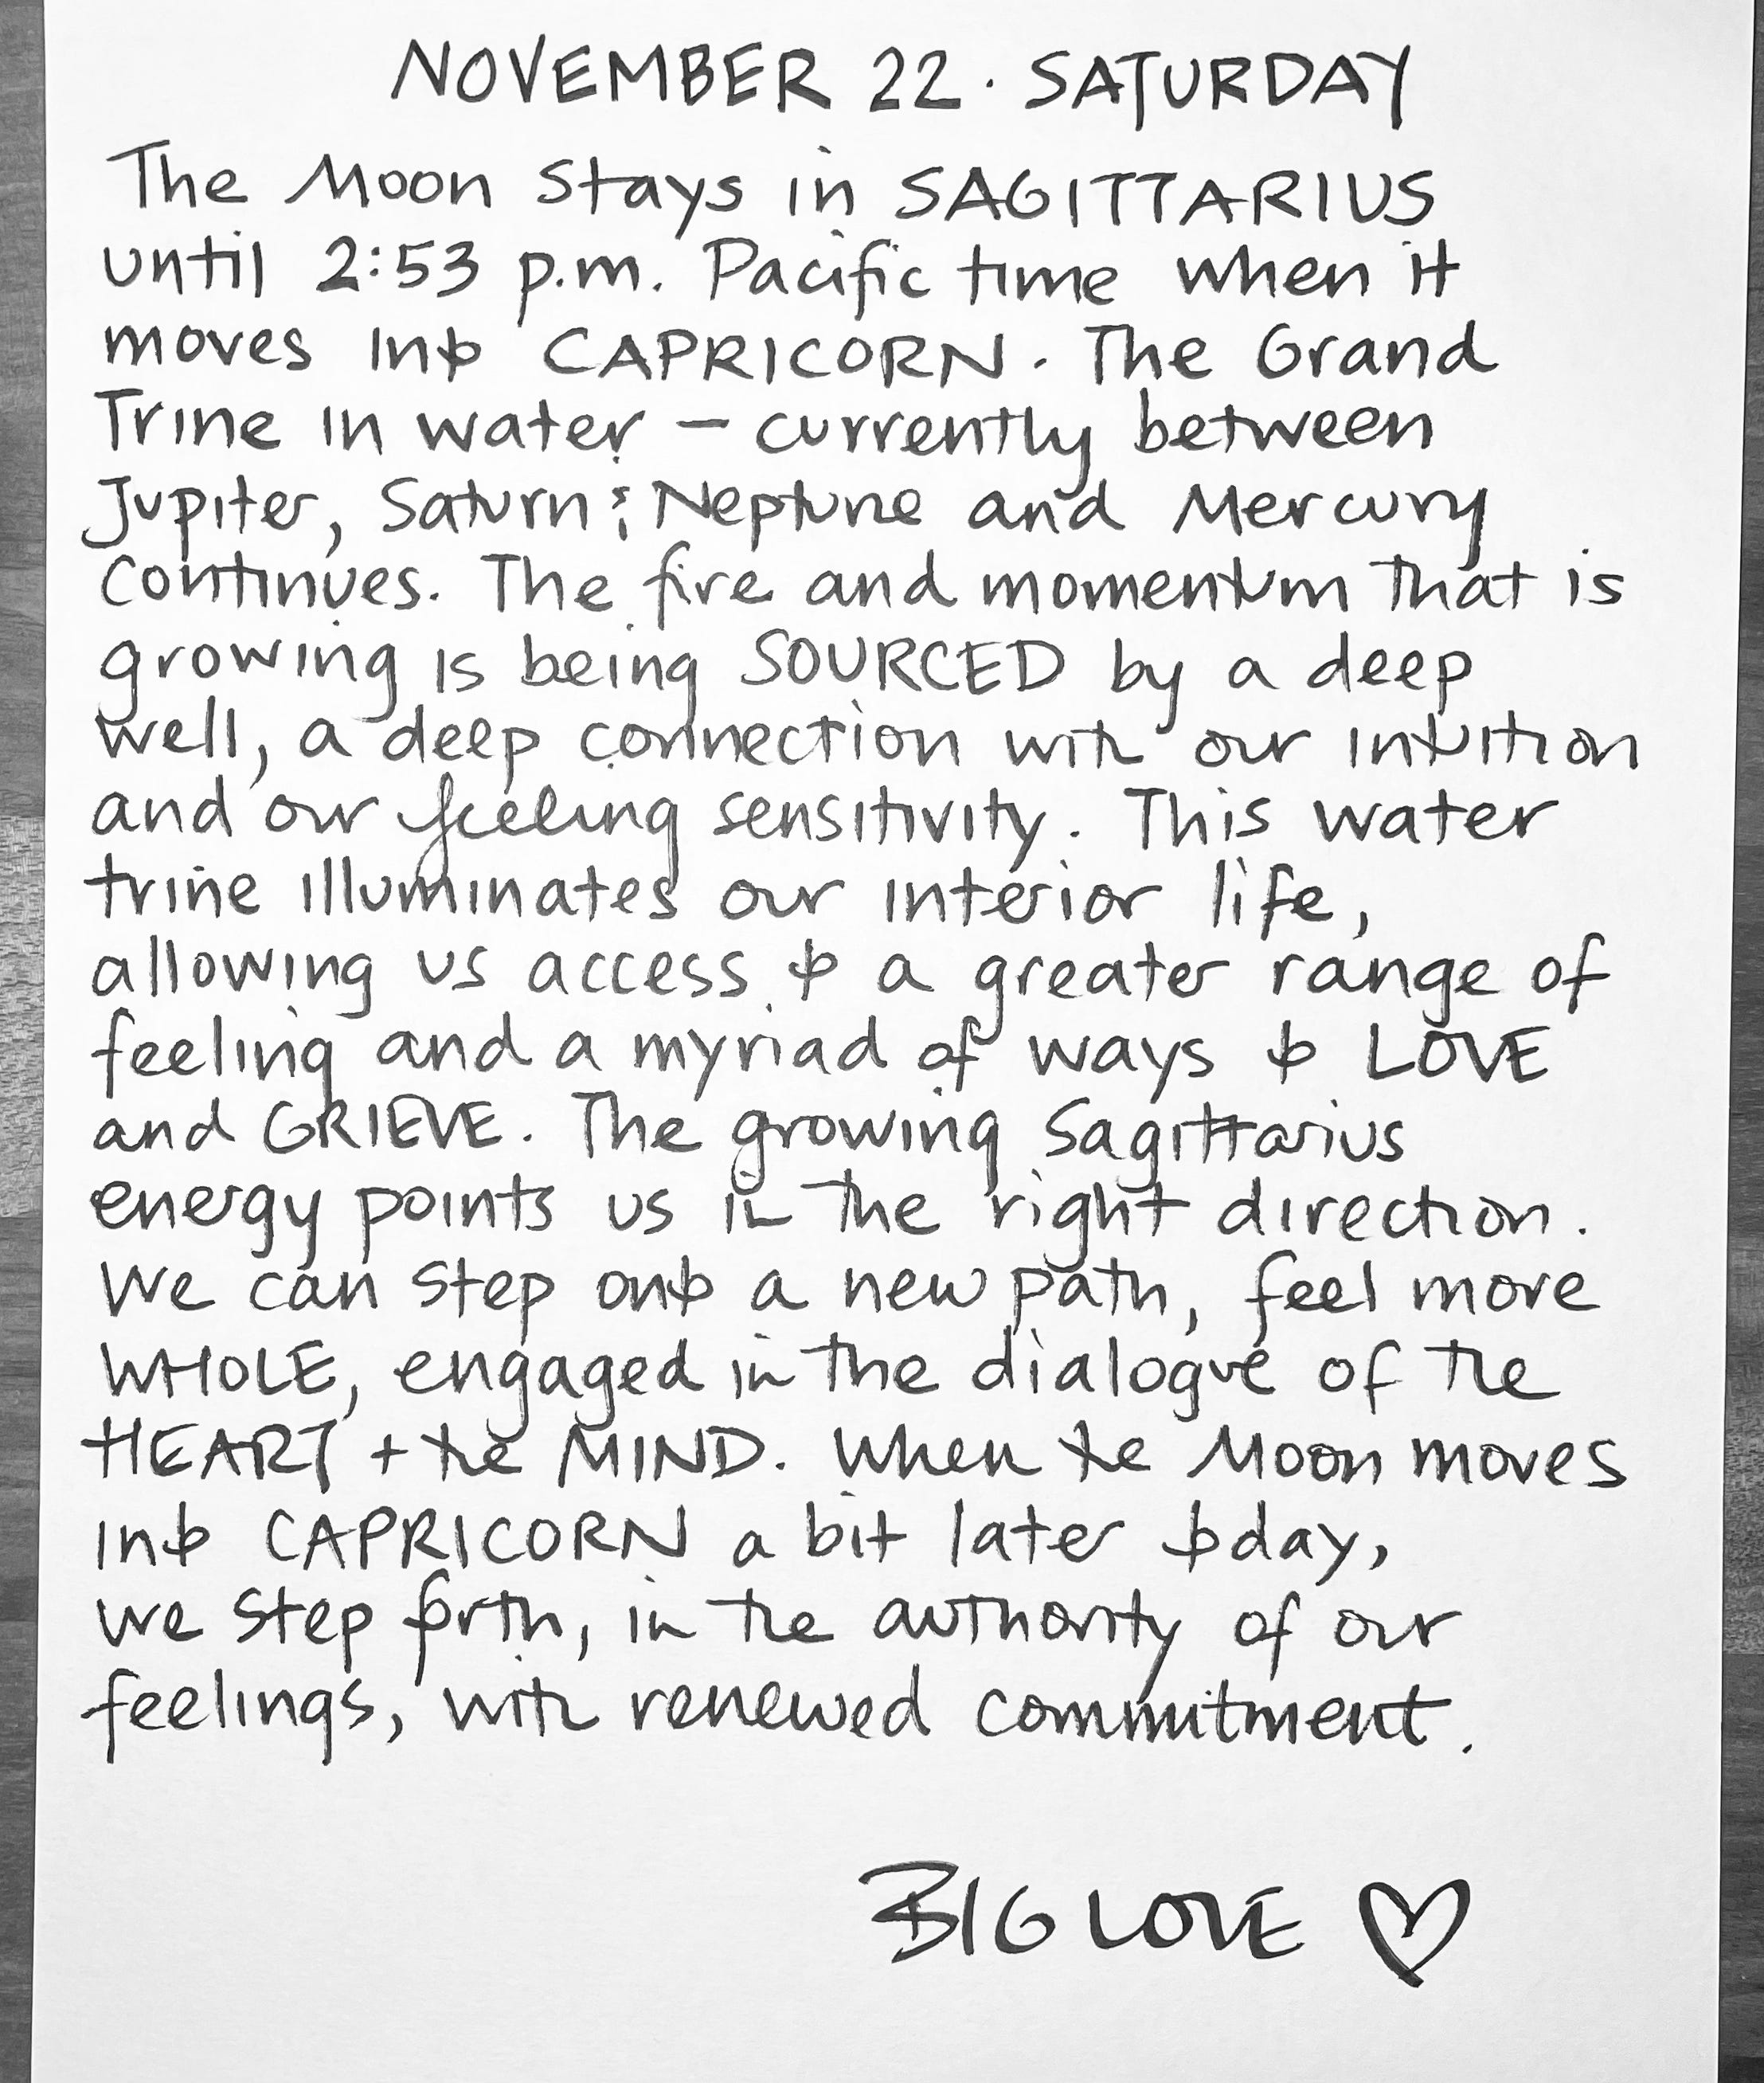 NOVEMBER 22 · SATURDAY
The Moon stays in SAGITTARIUS
until 2:53 p.m. Pacific time when it
moves into CAPRICORN. The Grand
Trine in water – currently between
Jupiter, Saturn & Neptune and Mercury
continues. The fire and momentum that is
growing is being SOURCED by a deep
well, a deep connection with our intuition
and our feeling sensitivity. This water
trine illuminates our interior life,
allowing us access to a greater range of
feeling and a myriad of ways to LOVE
and GRIEVE. The growing Sagittarius
energy points us in the right direction.
We can step onto a new path, feel more
WHOLE, engaged in the dialogue of the
HEART + the MIND. When the Moon moves
into CAPRICORN a bit later today,
we step forth, in the authority of our
feelings, with renewed commitment.
BIG LOVE ♡